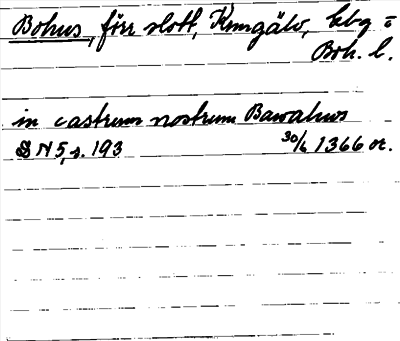 Bohus, förr slott, Kungälv, kbg =
Boh. l.
in castrum nostrum Bawahus
SRN 5, s. 193 30/6 1366 or.